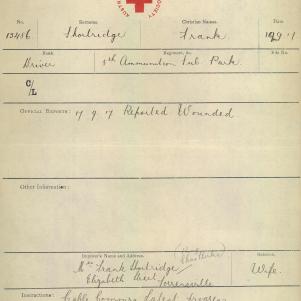 No. Surname. Christian Names. Date
13456 Shortridge Frank 19.9.17
Rank Regiment, &c.
Driver 5th Ammunition Sub Park.
C/L
OFFICIAL REPORTS: 17 9 17 Reported Wounded
Other Information:
Enquirer's Name and Address. Relation.
Mrs Frank Shortridge Wife.
Elizabeth Street
Instructions: Cable